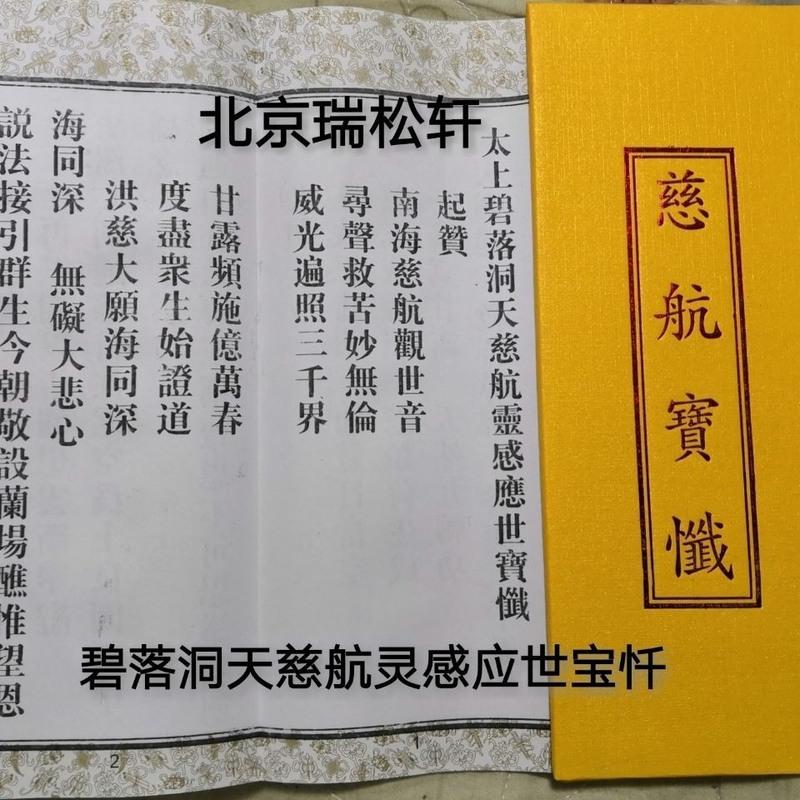 北京瑞松轩
太上碧落洞天慈航靈感應世寶懺
起贊
南海慈航觀世音
尋聲救苦妙無倫
威光遍照三千界
甘露頻施億萬春
度盡衆生始證道
洪慈大願海同深
海同深 無礙大悲心
説法接引群生今朝敬設蘭場醮惟望恩
慈航寶懺
碧落洞天慈航灵感应世宝忏
1
2